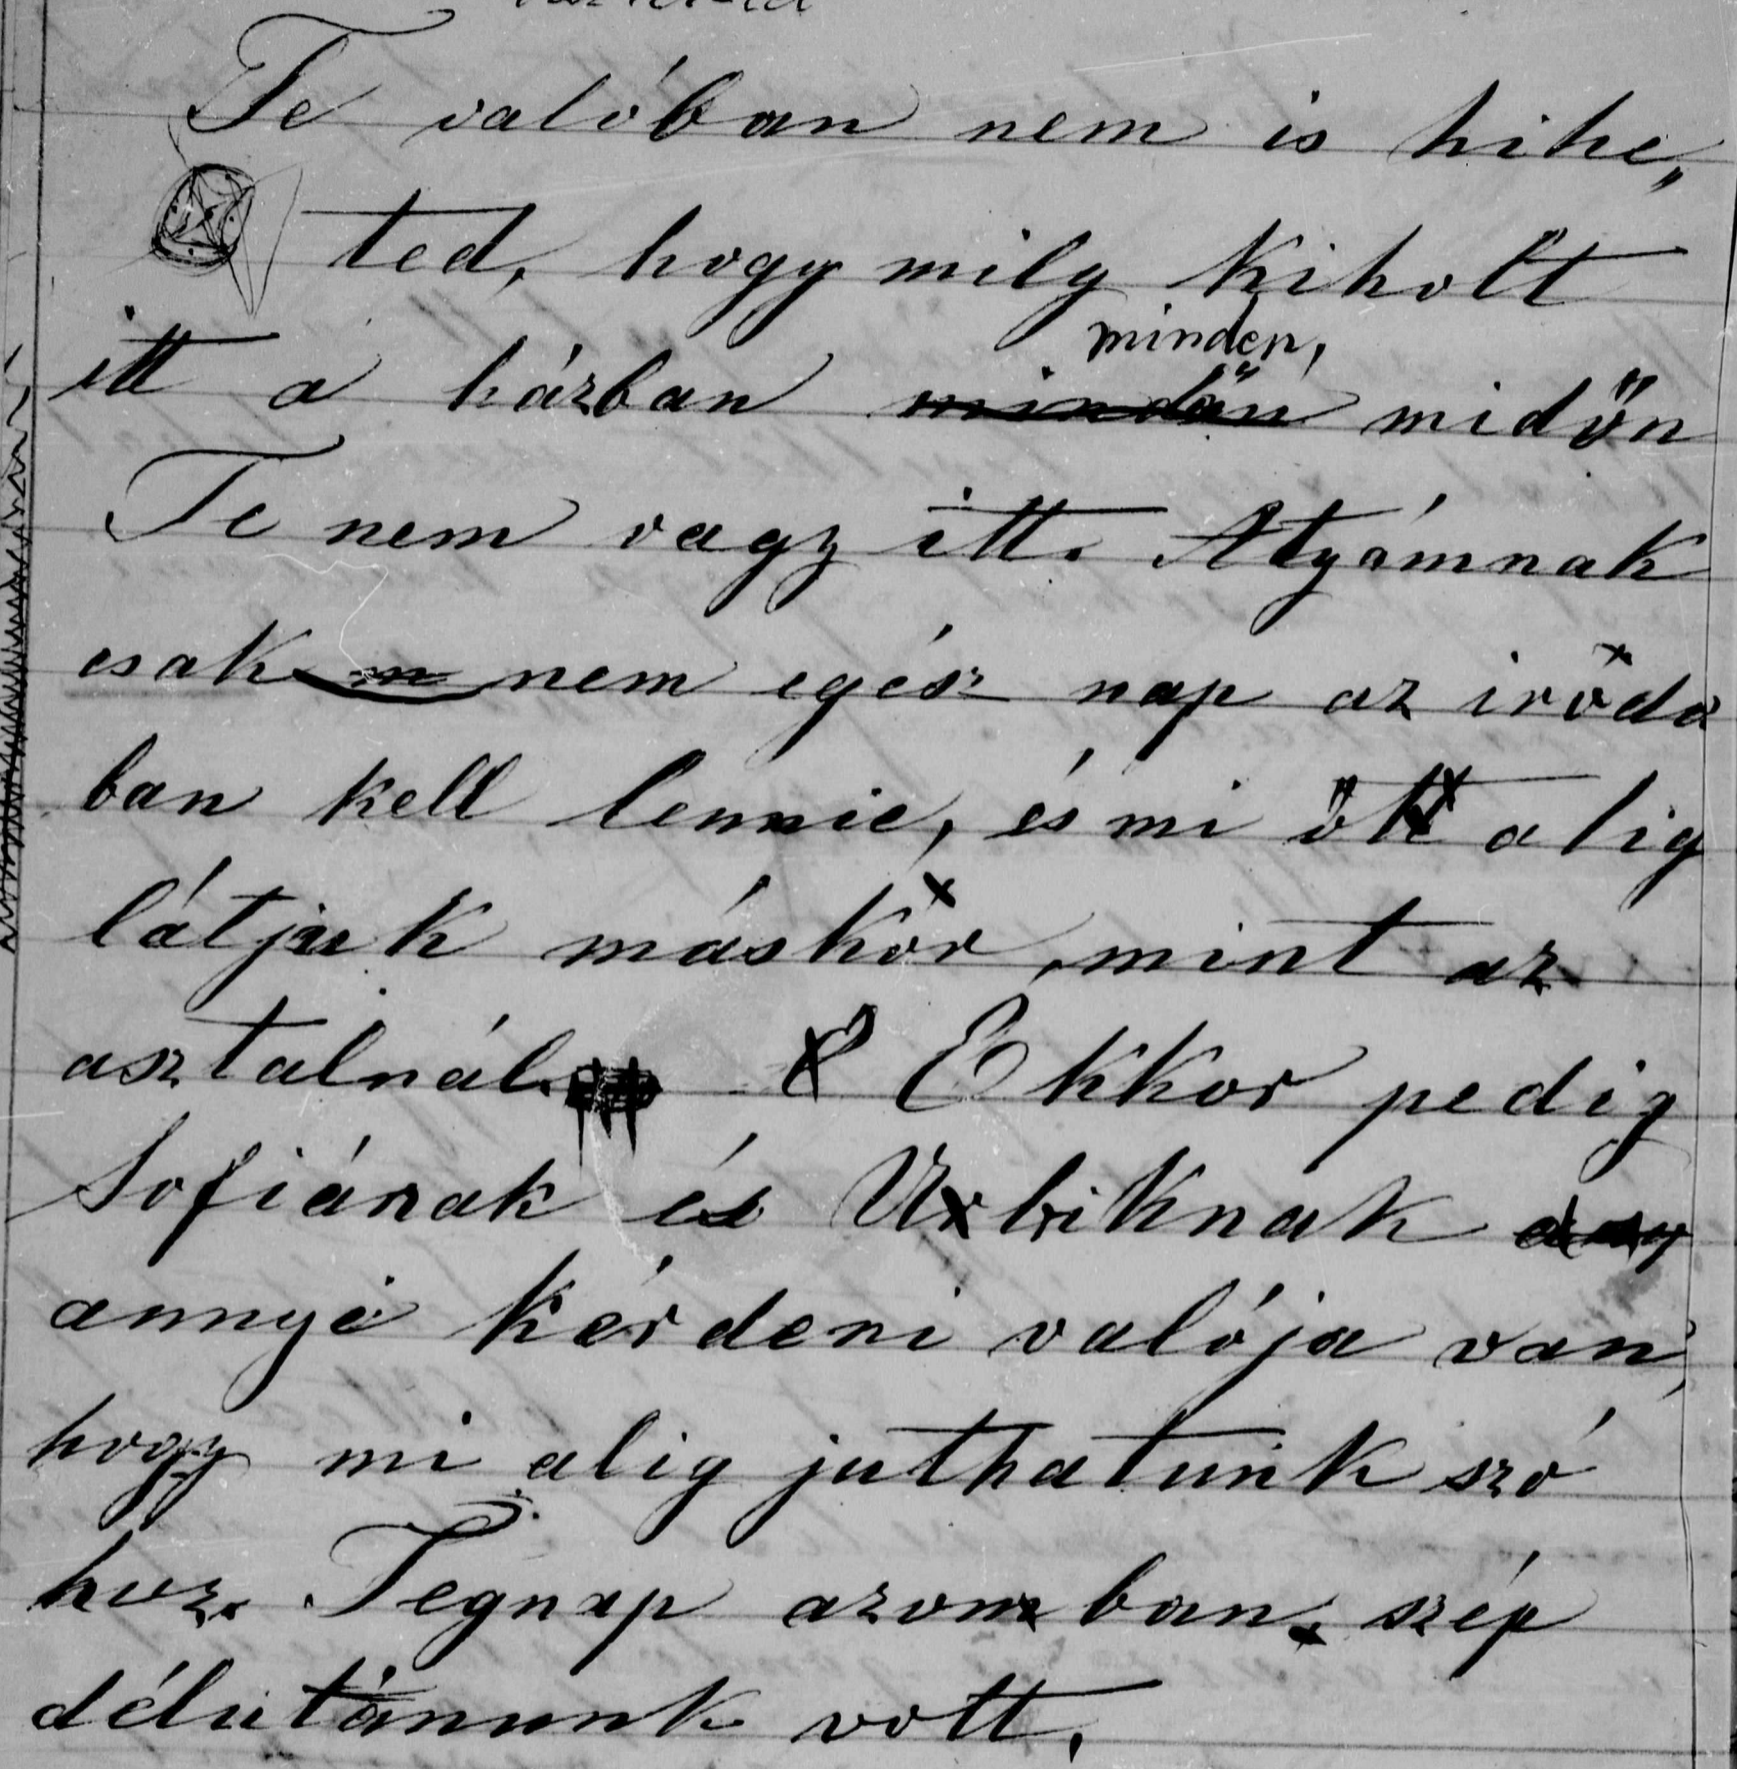 Te valóban nem is hihe„
ted, hogy mily kiholt
minden,
itt a házban mindön midőn
Te nem vagy itt. Atyámnak
csak m nem egész nap az iröda
ban kell lennie, és mi őtt alig
látjuk máskör, mint az
asztalnál. E Ekkor pedig
Sofiának és Urbiknak
annyi kérdeni valója van,
hogy mi alig juthatunk szó
hoz. Tegnap azomban, szép
délutánunk vott.